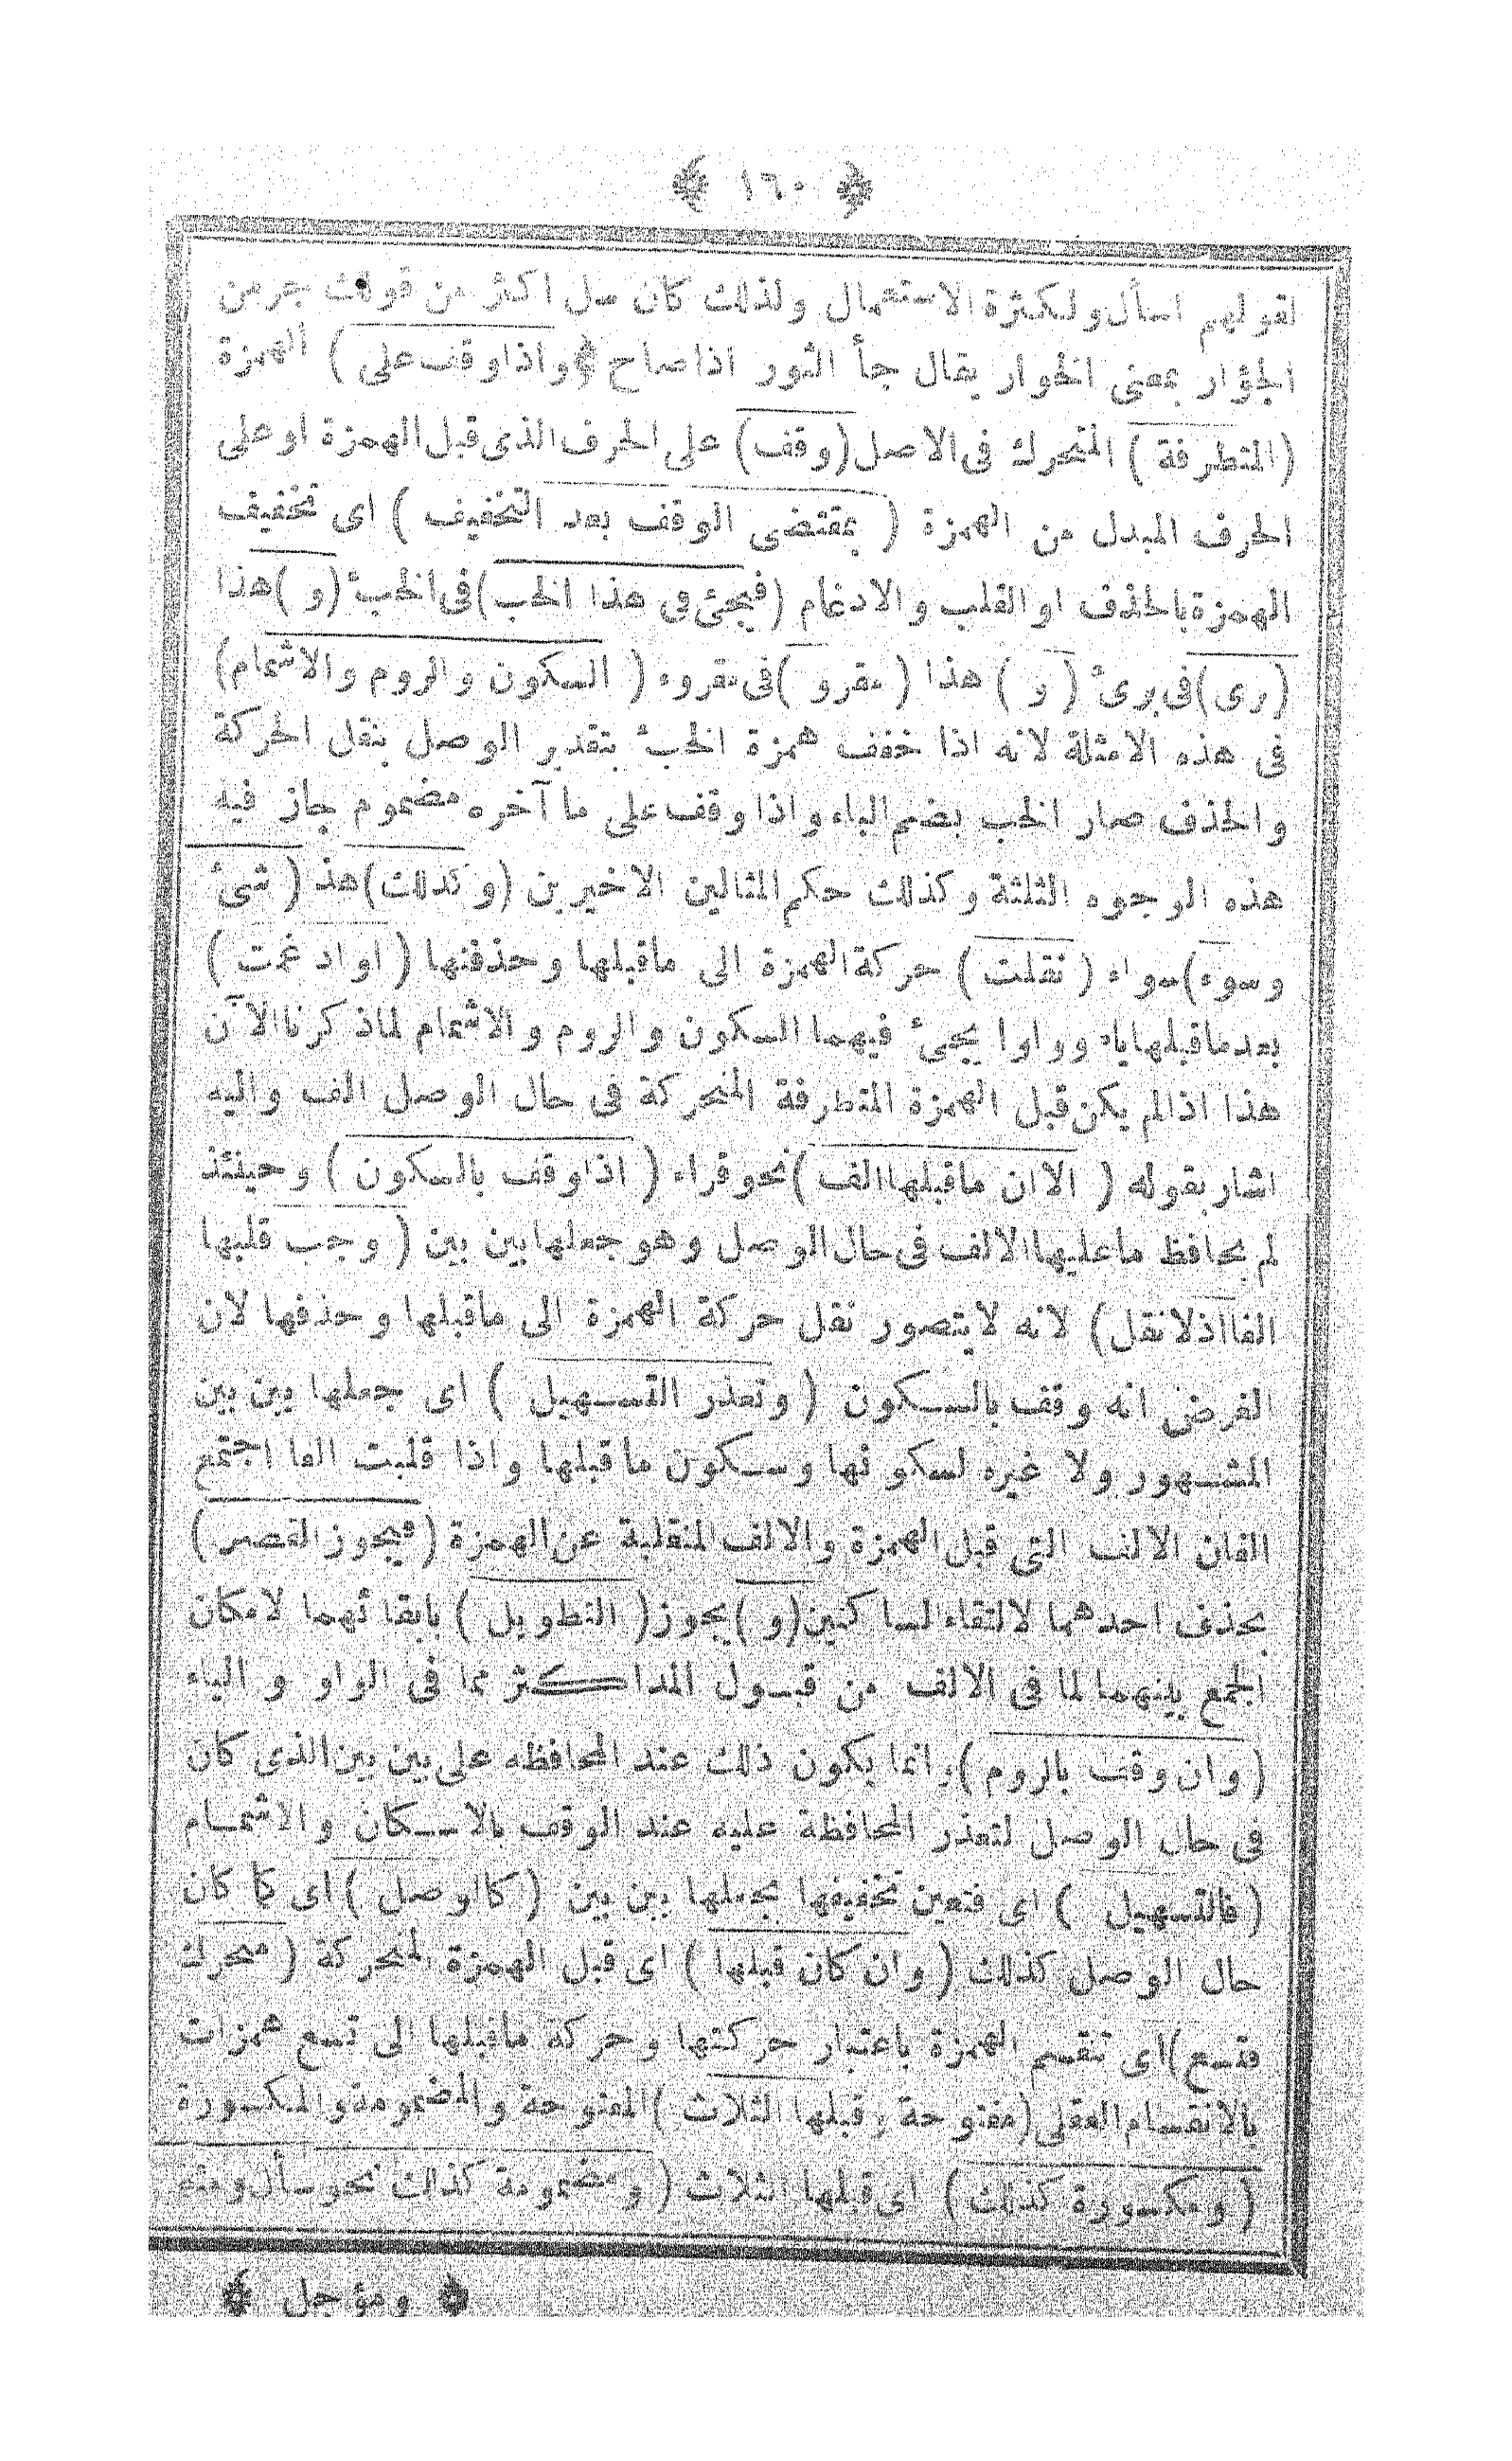 ﴿ ١٦٠ ﴾
لقولهم اسأل ولكثرة الاستعمال ولذلك كان سل اكثر من قولك جر من
الجؤار بمعنى الخوار يقال جأ الثور اذا صاح ﴿ واذا وقف على ) الهمزة
(المتطرفة ) المتحرك فى الاصل (وقف) على الحرف الذى قبل الهمزة او على
الحرف المبدل من الهمزة ( بمقتضى الوقف بعد التخفيف ) اى تخفيف
الهمزة بالحذف او القلب والادغام (فيجئ فى هذا الخب)فى الخبئ (و )هذا
(رى)فى برئ ( و ) هذا ( مقرو )فى مقروء ( السكون والروم والاشمام)
فى هذه الامثلة لانه اذا خفف همزة الخبئ بتقدير الوصل بنقل الحركة
والحذف صار الخب بضم الباء واذا وقف على ما آخره مضموم جاز فيه
هذه الوجوه الثلثة وكذلك حكم المثالين الاخيرين (وكذلك)هذ ( شئ
وسوء)سواء ( نقلت ) حركة الهمزة الى ماقبلها وحذفتها ( اوادغمت )
بعد ماقبلها ياء وواوا يجئ فيهما السكون والروم والاشمام لماذكرنا الآن
هذا اذالم يكن قبل الهمزة المتطرفة المتحركة فى حال الوصل الف واليه
اشار بقوله ( الاان ماقبلها الف )نحو قراء ( اذا وقف بالسكون ) وحينئذ
لم يحافظ ماعليها الالف فى حال الوصل وهو جعلها بين بين ( وجب قلبها
الفا اذلانقل) لانه لايتصور نقل حركة الهمزة الى ماقبلها وحذفها لان
الفرض انه وقف بالسكون ( وتعذر التسهيل ) اى جعلها بين بين
المشهور ولا غيره لسكونها وسكون ماقبلها واذا قلبت الفا اجتمع
الفان الالف التى قبل الهمزة والالف المنقلبة عن الهمزة ( فيجوز القصر )
بحذف احدهما لالتقاء الساكنين(و )يجوز( التطويل ) بابقائهما لامكان
الجمع بينهما لما فى الالف من قبول المداكثر مما فى الواو والياء
( وان وقف بالروم )وانما يكون ذلك عند المحافظه على بين بين الذى كان
فى حال الوصل لتعذر المحافظة عليه عند الوقف بالاسكان والاشمام
( فالتسهيل ) اى فتعين تخفيفها بجعلها بين بين ( كالوصل ) اى كما كان
حال الوصل كذلك ( وان كان قبلها ) اى قبل الهمزة المتحركة ( متحرك
فتسع)اى تنقسم الهمزة باعتبار حركتها وحركة ماقبلها الى تسع همزات
بالانقسام العقلى (مفتوحة وقبلها الثلاث )المفتوحة والمضمومة والمكسورة
( ومكسورة كذلك ) اى قبلها الثلاث ( ومضمومة كذلك نحو سأل ومئه
﴿ ومؤجل ﴾